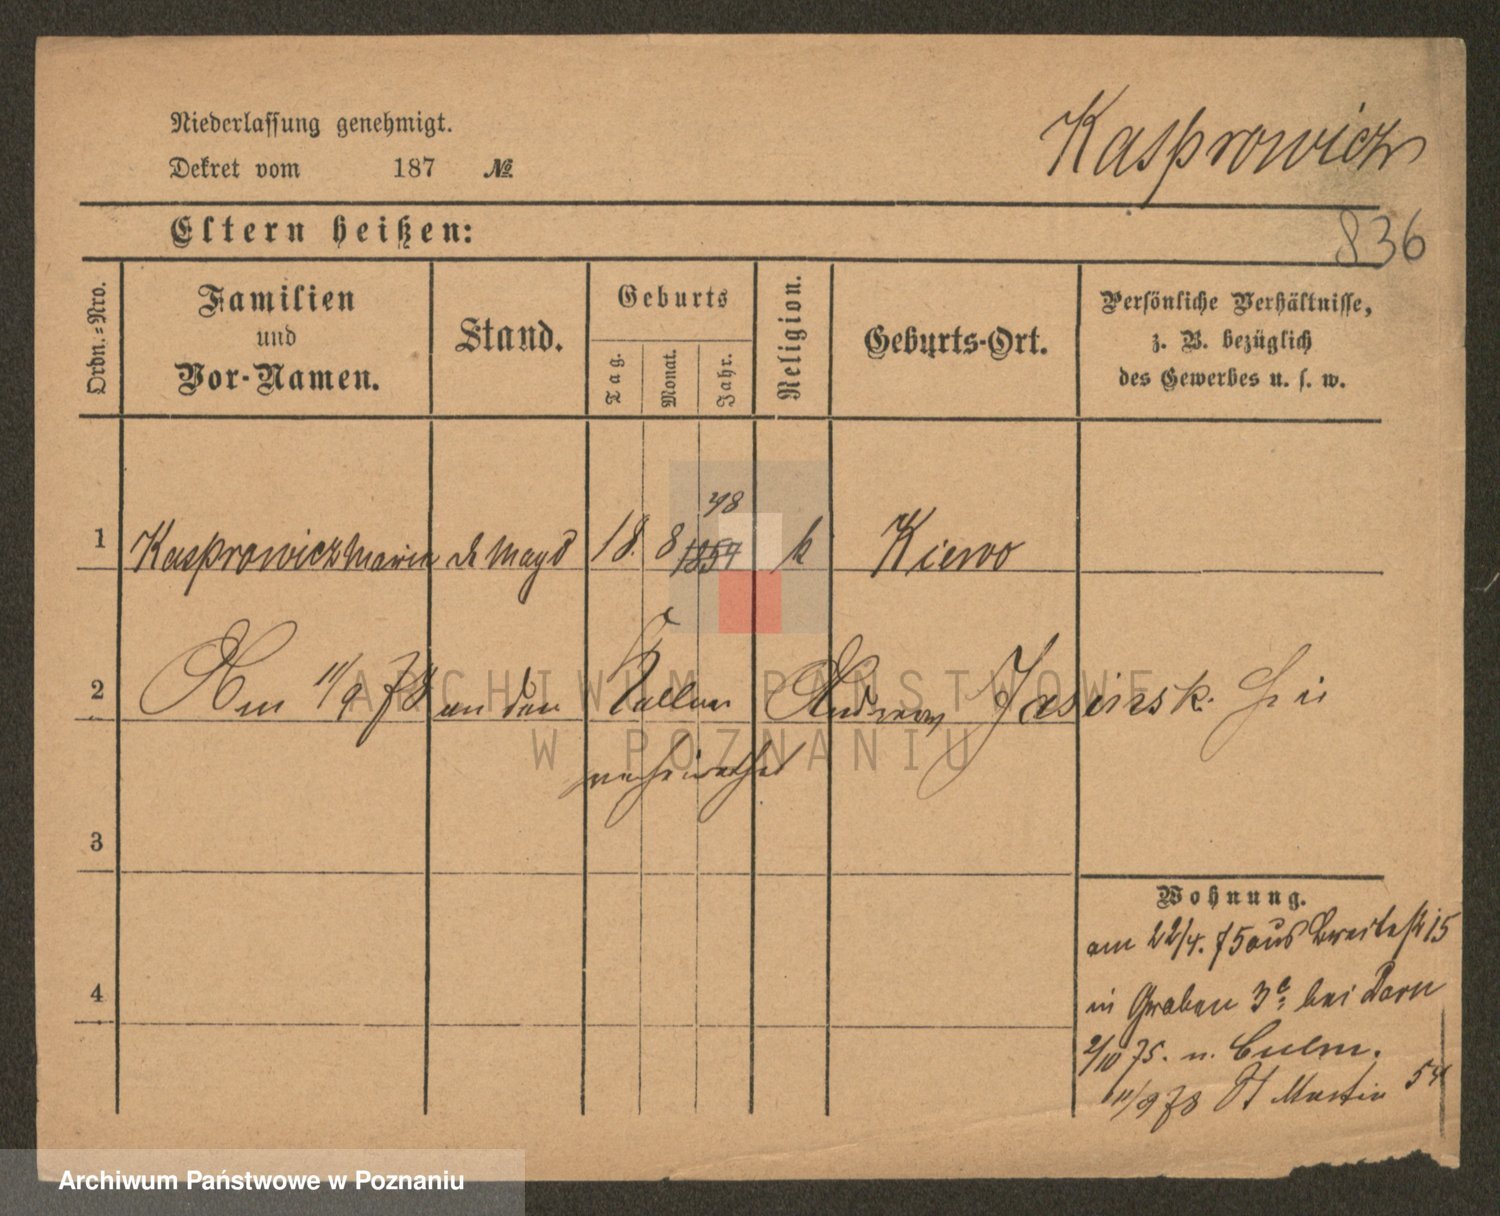 Niederlassung genehmigt.
Kasprowicz
Dekret vom 187 №
Eltern heißen:
836
Ordn.=Nro.
Familien
und
Vor-Namen.
Stand.
Geburts
Tag.
Monat.
Jahr.
Religion.
Geburts-Ort.
Persönliche Verhältnisse,
z. B. bezüglich
des Gewerbes u. s. w.
48
1 Kasprowicz Marie d. Magd 18. 8 1854 k Kiewo
2 Am 11/9 78 an den Kellner Andreas Jasinsk. hie
verheirathet
3
Wohnung.
am 22/4. 75 aus Breitestr 15
in Graben 3c bei Dorn
4
2/10 75. n. Culm.
11/9 78 St Martin 54
ARCHIWUM PAŃSTWOWE
W POZNANIU
Archiwum Państwowe w Poznaniu